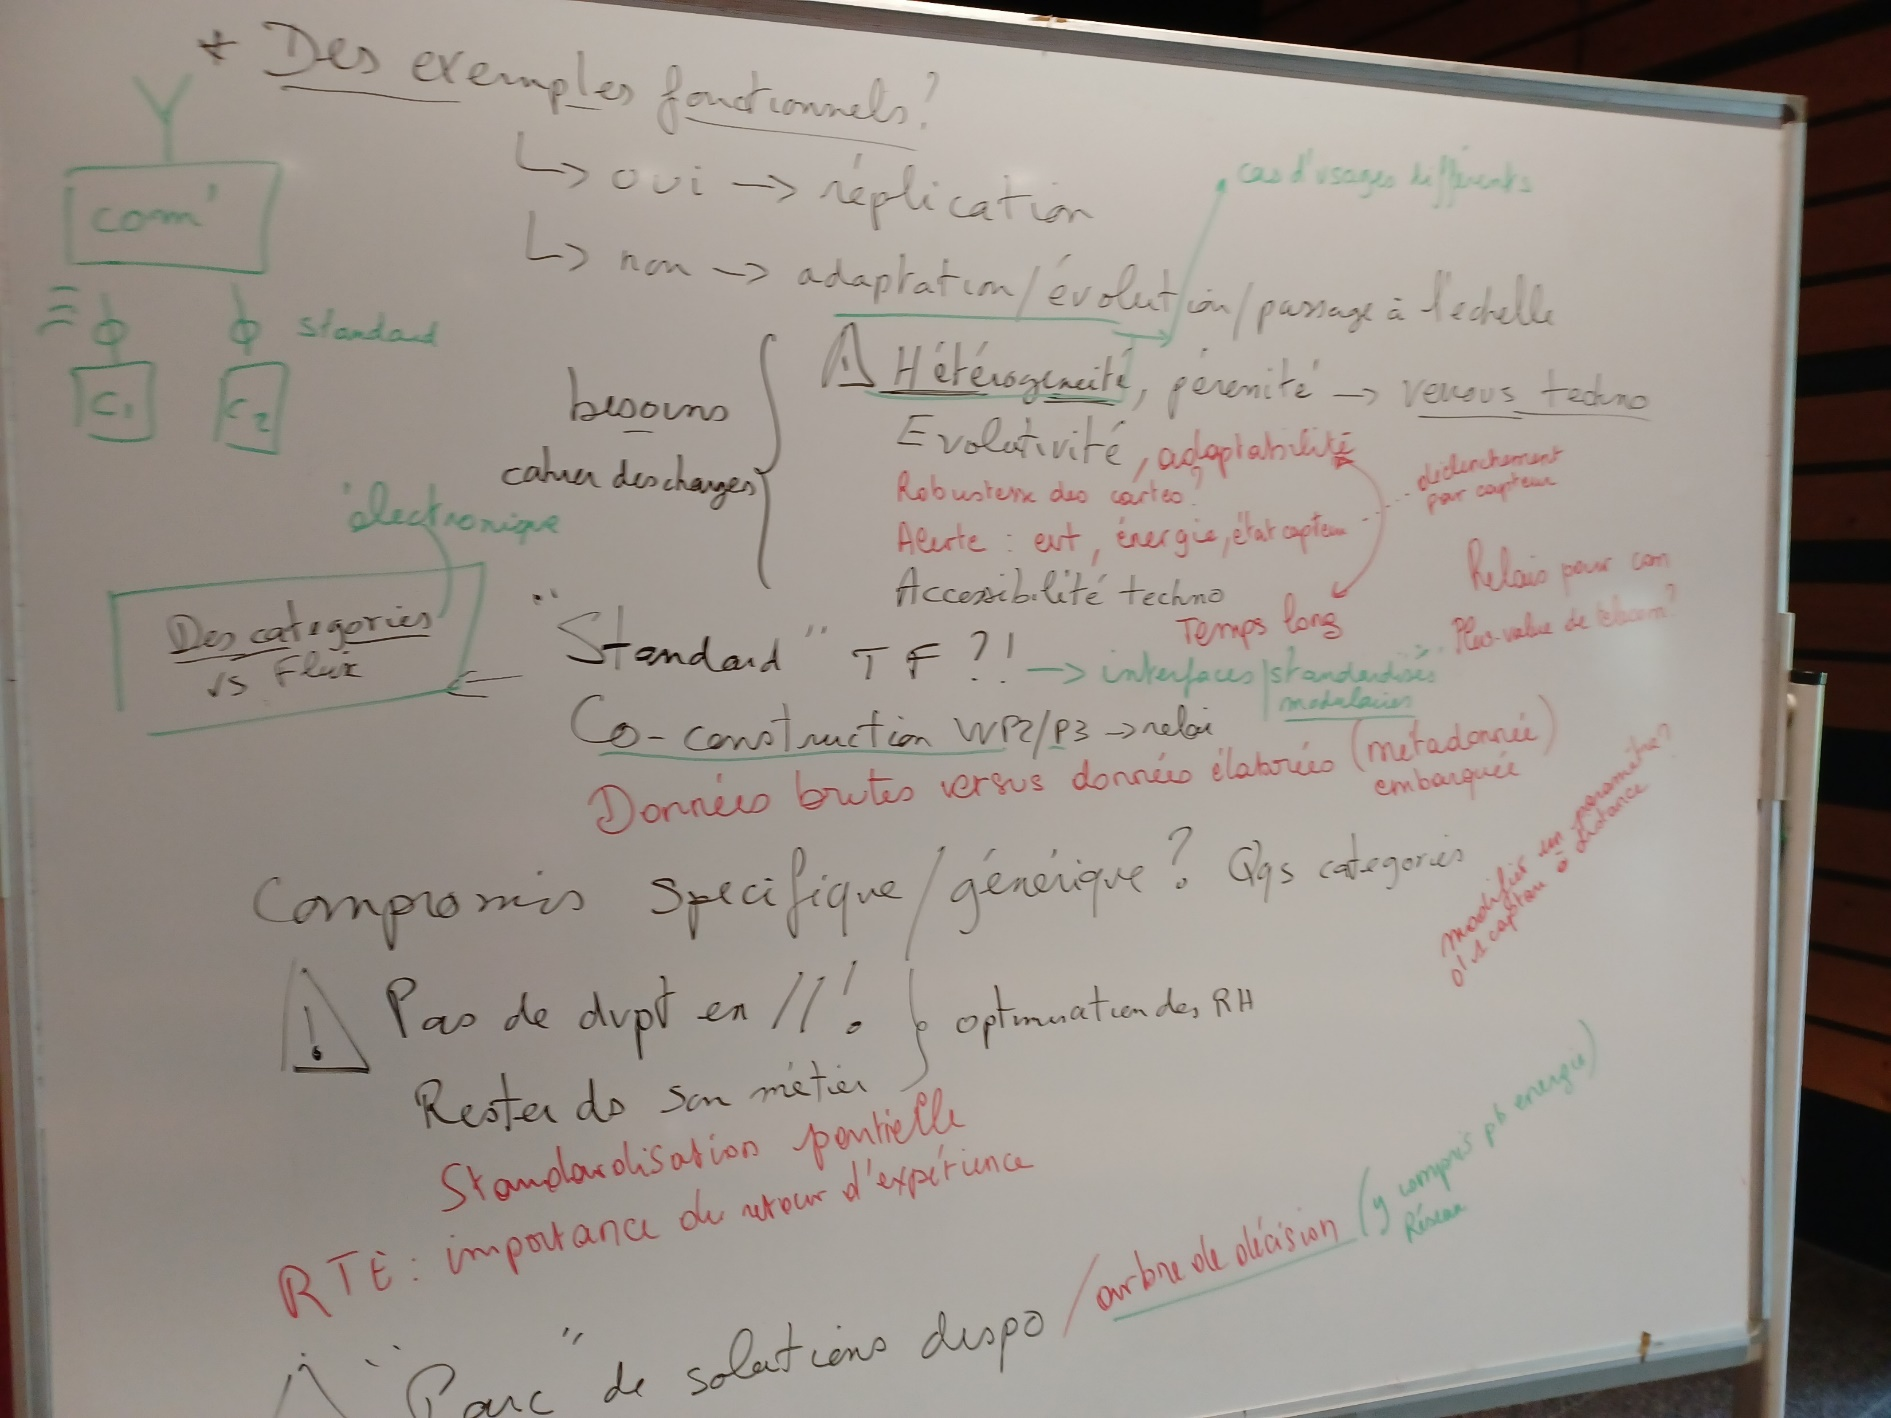 * Des exemples fonctionnels ?
↳ oui → réplication
cas d'usages différents
↳ non → adaptation/évolution/passage à l'échelle
com'
standard
C1 C2
besoins
cahier des charges
⚠ Hétérogeneité, pérénité → verrous techno
Evolutivité, adaptabilité
Robustesse des cartes ?
Alerte : evt, énergie, état capteur
Accessibilité techno
déclenchement
par capteur
Temps long
Relais pour com
Plus-value de telecom ?
électronique
Des categories
vs Flux
"Standard" TF ?! → interfaces/standardisés
modulaires
Co-construction WP2/P3 → relai
Données brutes versus données élaborées (métadonnée)
embarquée
modifier un paramètre ?
d'1 capteur à distance
Compromis specifique/générique ? Qqs categories
⚠ Pas de dvpt en // !
Rester ds son métier
optimisation des RH
Standardisation partielle
RTE : importance du retour d'expérience
⚠ "Parc" de solutions dispo / arbre de décision (y compris pb energie)
Réseau